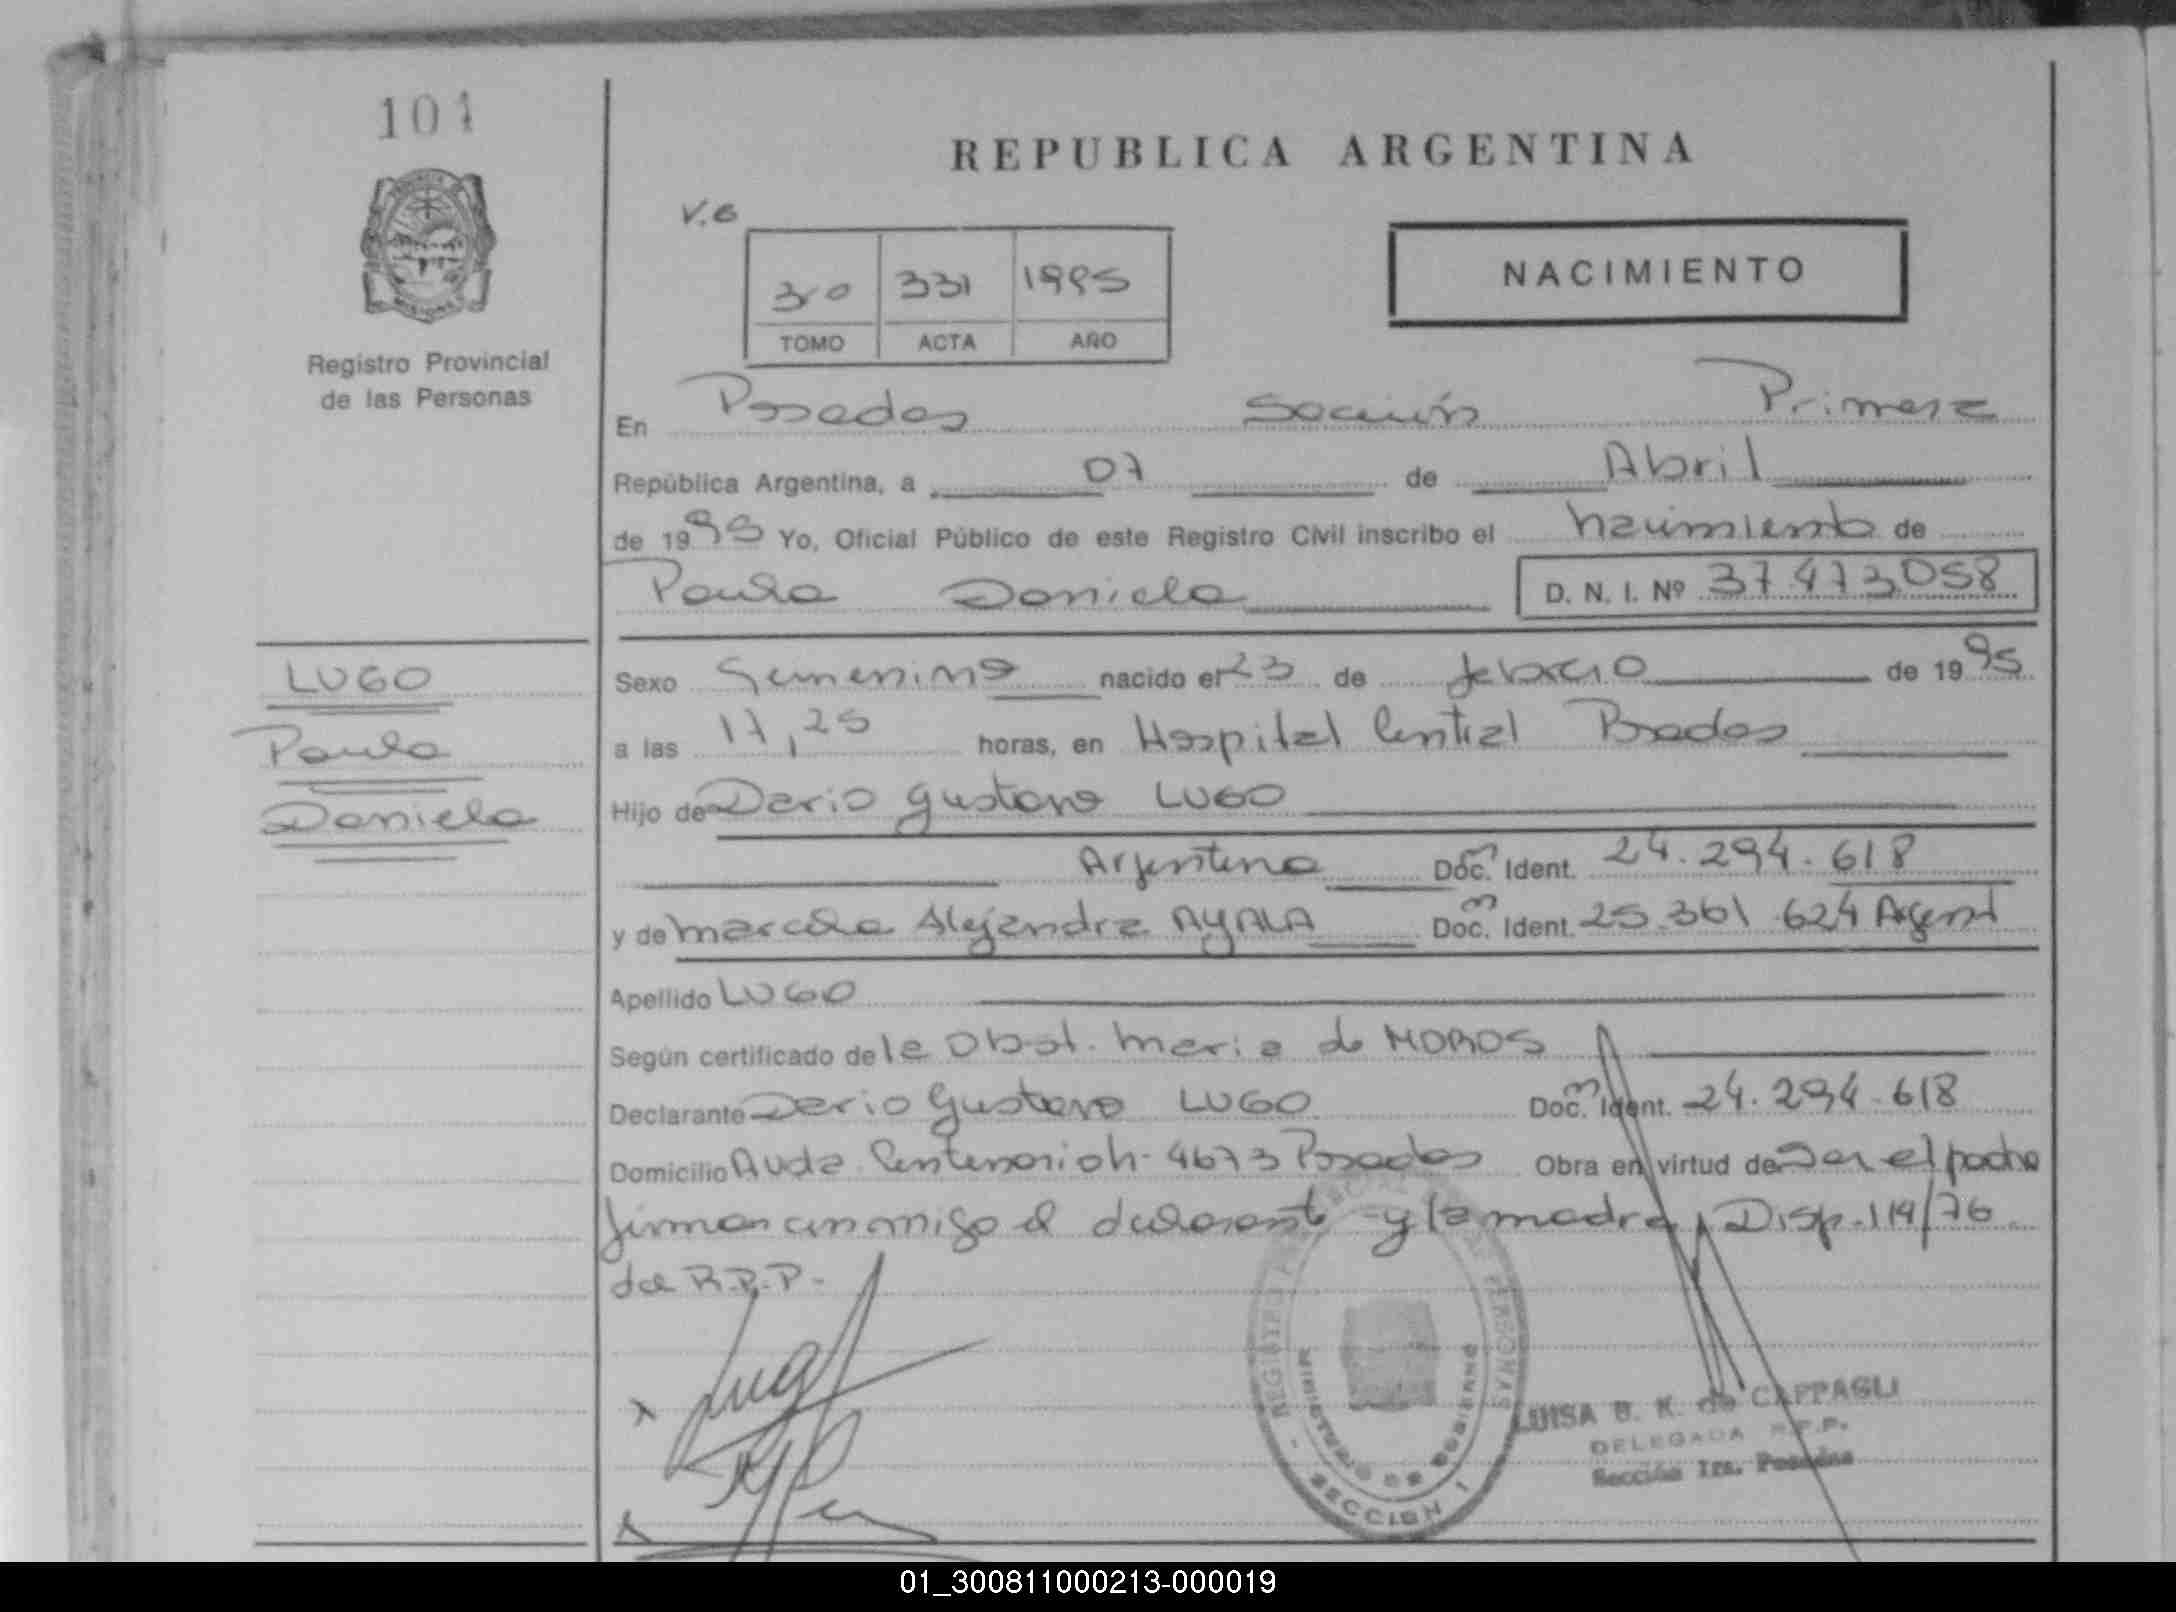 101
REPUBLICA ARGENTINA
V.6
NACIMIENTO
30 331 1995
TOMO ACTA AÑO
Registro Provincial
de las Personas
En Posadas Sección Primera
República Argentina, a 07 de Abril
de 1995 Yo, Oficial Público de este Registro Civil inscribo el nacimiento de
Paula Daniela D. N. I. Nº 37473058
LUGO
Paula
Daniela
Sexo Femenino nacido el 23 de febrero de 1995
a las 17,25 horas, en Hospital Central Posadas
Hijo de Dario Gustavo LUGO
Argentino Doc. Ident. 24.294.618
y de Marcela Alejandra AYALA Doc. Ident. 25.361.624 Argent
Apellido LUGO
Según certificado de la Obst. Maria de MOROS
Declarante Dario Gustavo LUGO Doc. Ident. 24.294.618
Domicilio Avda. Centenario 4673 Posadas Obra en virtud de Ser el padre
firman conmigo el declarante y la madre, Disp. 119/76
del R.P.P.-
Lugo
REGISTRO PROVINCIAL DE LAS PERSONAS
MINISTERIO DE GOBIERNO
SECCION 1
LUISA B. K. de CAPPAGLI
DELEGADA R.P.P.
Sección 1ra. Posadas
01_300811000213-000019